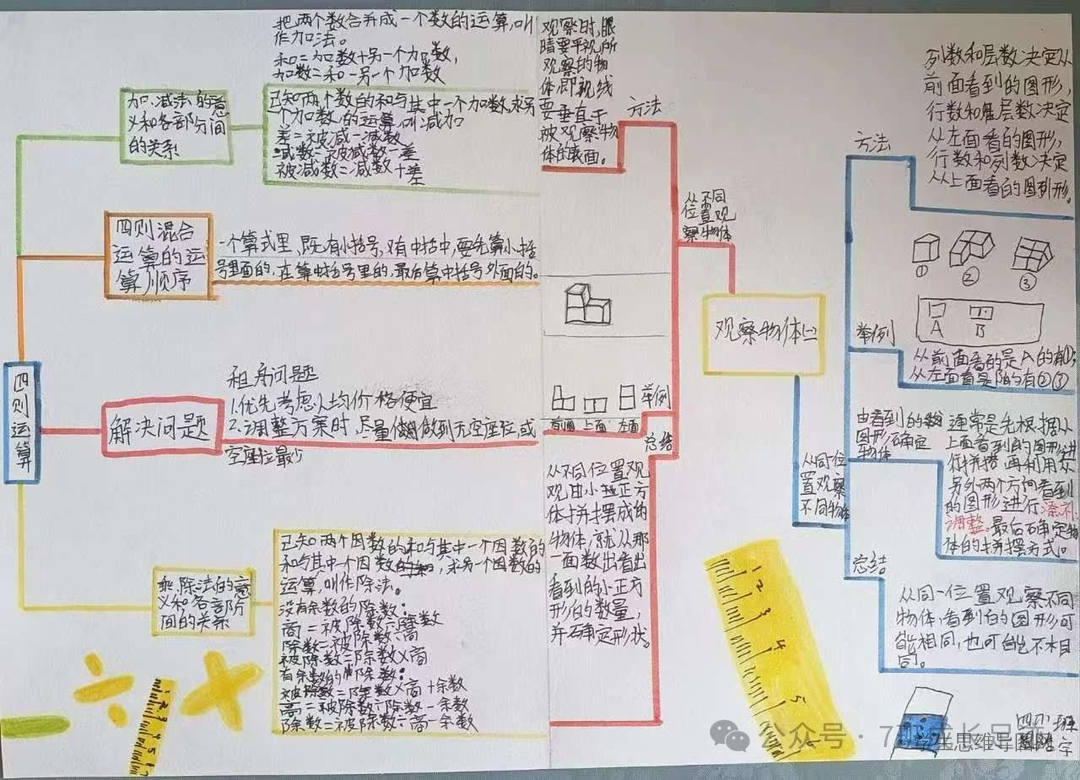 四则运算
加、减法的意
义和各部分间
的关系
把两个数合并成一个数的运算,叫
作加法。
和=加数+另一个加数,
加数=和-另一个加数
已知两个数的和与其中一个加数,求另
一个加数的运算,叫减加
差=被减-减数
减数=被减数-差
被减数=减数+差
四则混合
运算的运
算顺序
一个算式里,既有小括号,又有中括中,要先算小括
号里面的,在算中括号里的,最后算中括号外面的。
解决问题
租房问题
1.优先考虑人均价格便宜
2.调整方案时,尽量做到无空座位或
空座位最少
乘、除法的意
义和各部分
间的关系
已知两个因数的和与其中一个因数的
和与其中个因数,求另一个因数的
运算,叫作除法。
没有余数的除数:
商=被除数÷除数
除数=被除数÷商
被除数=除数×商
有余数的除数:
被除数=除数×商+余数
商=被除数÷除数-余数
除数=被除数÷商-余数
观察物体(二)
从不同
位置观
察物体
方法
观察时,眼
睛要平视所
观察的物
体,即视线
要垂直于
被观察物
体的表面。
举例
上面
左面
总结
从不同位置观
观由小正方
体拼摆成的
物体,就从那
一面数出看出
看到的小正方
形的数量,
并确定形状。
从同位
置观察
不同物体
方法
列数和层数决定从
前面看到的图形,
行数和层数决定
从左面看的图形,
行数和列数决定
从上面看的图形。
举例
① ② ③
A B
从前面看的是A的有①;
从左面看是B的有②③
由看到的
图形确定
物体
通常是先根据从
上面看到的图形进
行拼搭,再利用从
另外两个方向看到
的图形进行
调整,最后确定物
体的拼摆方式。
总结
从同一位置观察不同
物体,看到的图形可
能相同,也可能不相
同。
1 2 3 4 5
公众号·7
思维导图网